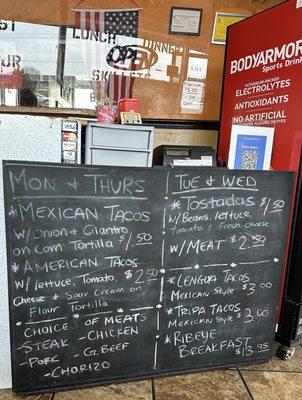 LUNCH
DINNER
OPEN
SKILLETS
BODYARMOR
Sports Drink
ELECTROLYTES
ANTIOXIDANTS
VISA
Mon & Thurs
*Mexican Tacos
w/Onion & Cilantro
on Corn Tortilla $1.50
*American Tacos
w/ lettuce, Tomato $2.50
Cheese & Sour Cream on
Flour Tortilla
Choice of Meats
-Steak -Chicken
-Pork -G. Beef
-Chorizo
Tue & Wed
*Tostadas $1.50
w/Beans, lettuce,
Tomato & Fresh Cheese
w/ Meat $2.50
*Lengua Tacos
Mexican Style $3.00
*Tripa Tacos
Mexican Style $3.00
*Ribeye
Breakfast $13.95